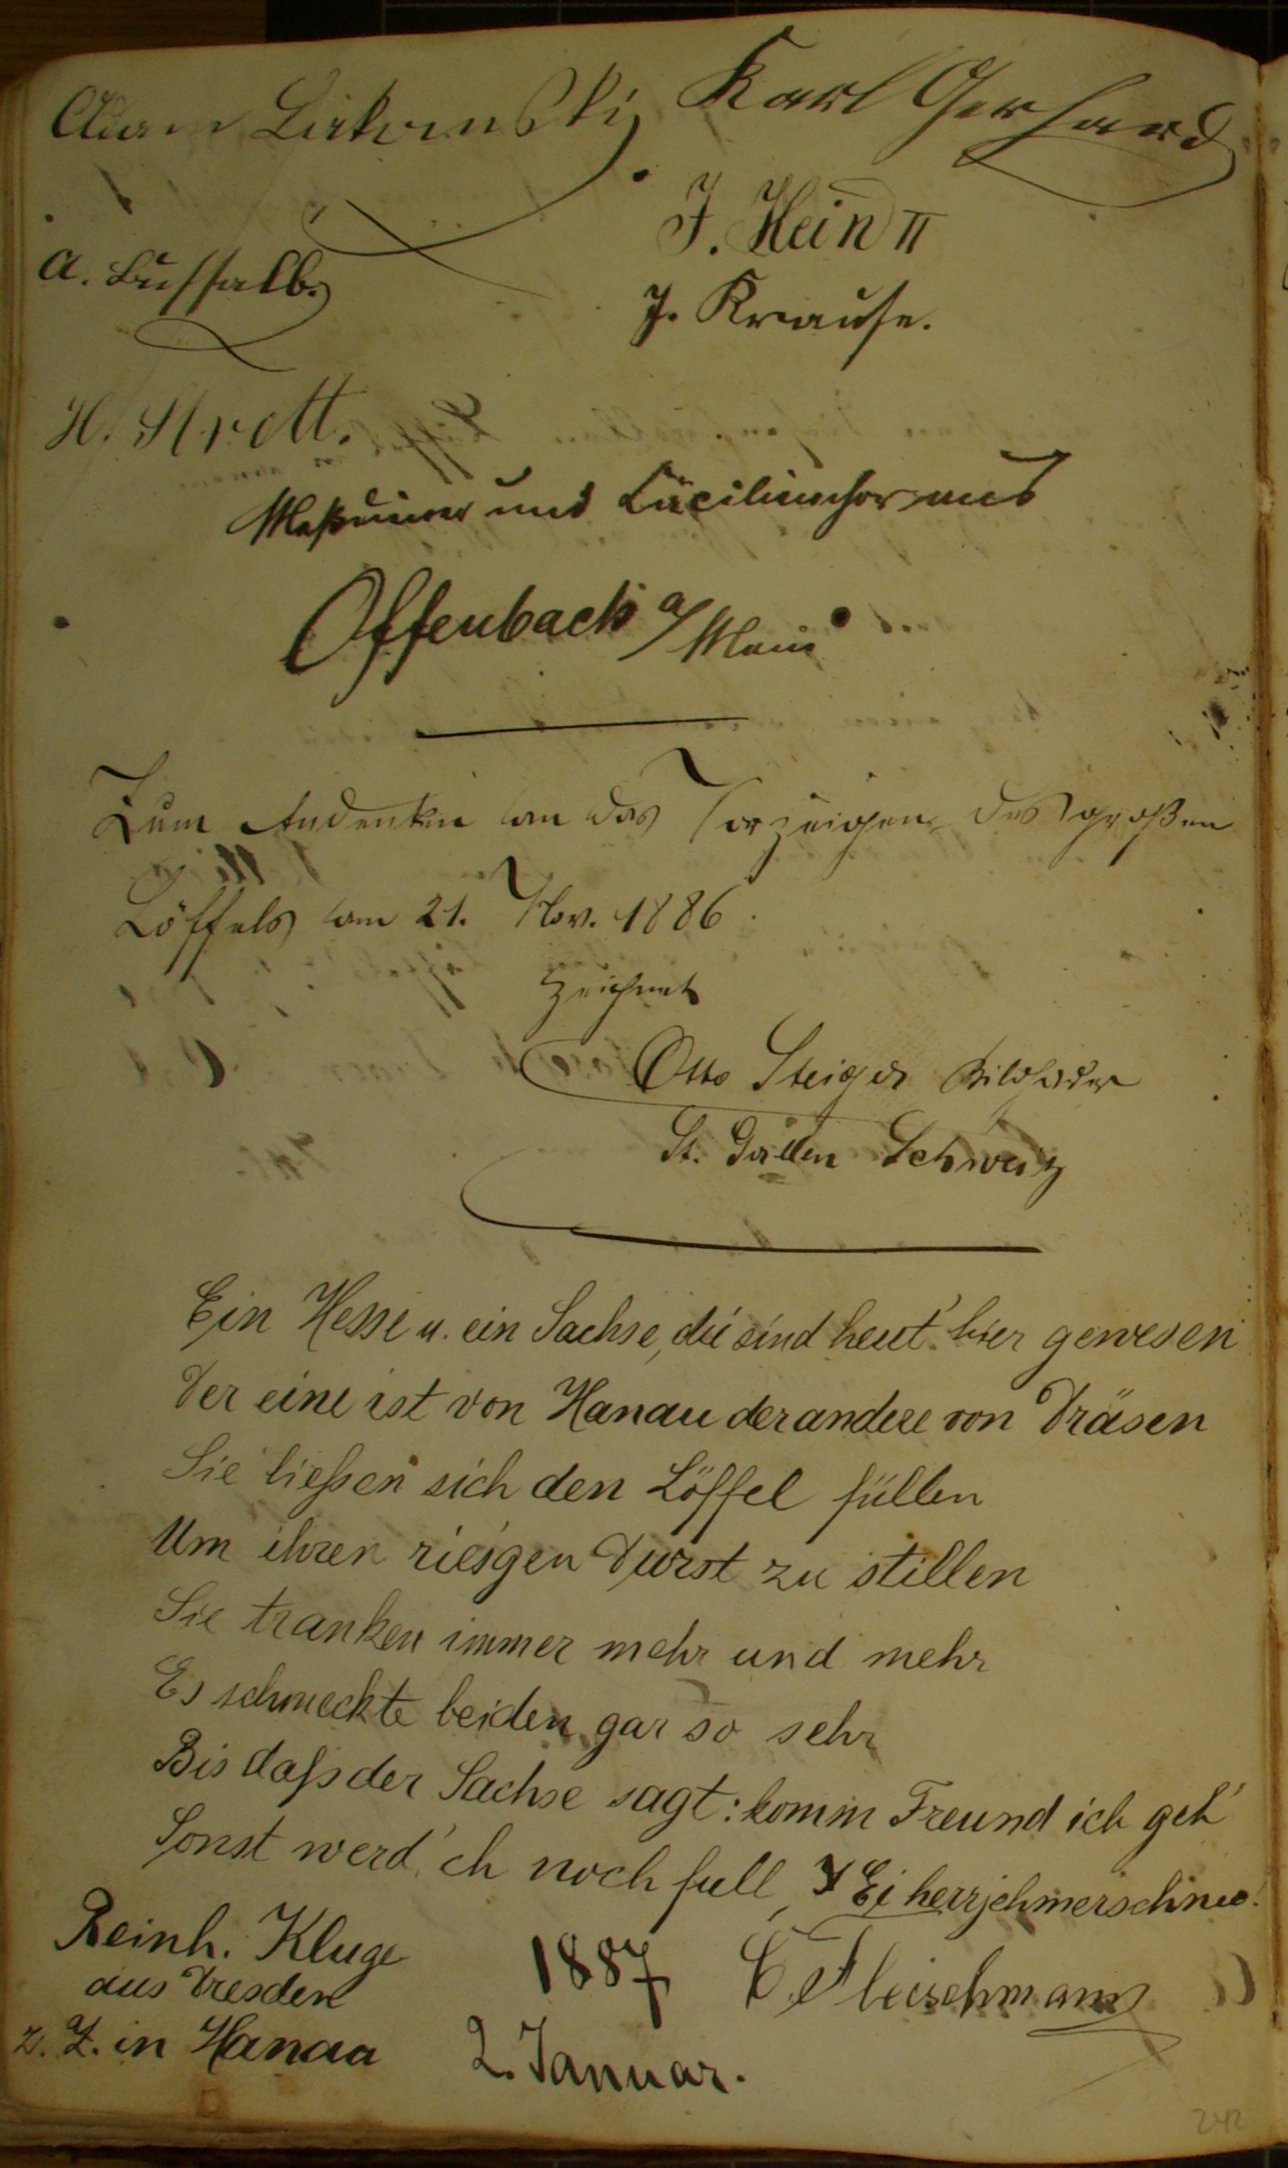 Karl Gerhard
J. Hein II
J. Krause.
H.
und Cäcilienchor aus
Offenbach a/Main
Zum Andenken an das Vorzeigen des großen
Löffels am 21. Nov. 1886.
zeichnet
Otto Steiger Bildhauer
St. Gallen Schweiz
Ein Hesse u. ein Sachse, die sind heut' hier gewesen
Der eine ist von Hanau der andere von Dräsen
Sie ließen sich den Löffel füllen
Um ihren ries'gen Durst zu stillen
Sie tranken immer mehr und mehr
Es schmeckte beiden gar so sehr
Bis daß der Sachse sagt: komm Freund ich geh'
Sonst werd' ch noch full, Ei herrjehmerschnee!
Reinh. Kluge
aus Dresden
z. Z. in Hanau
1887
2. Januar.
C. Fleischmann
242